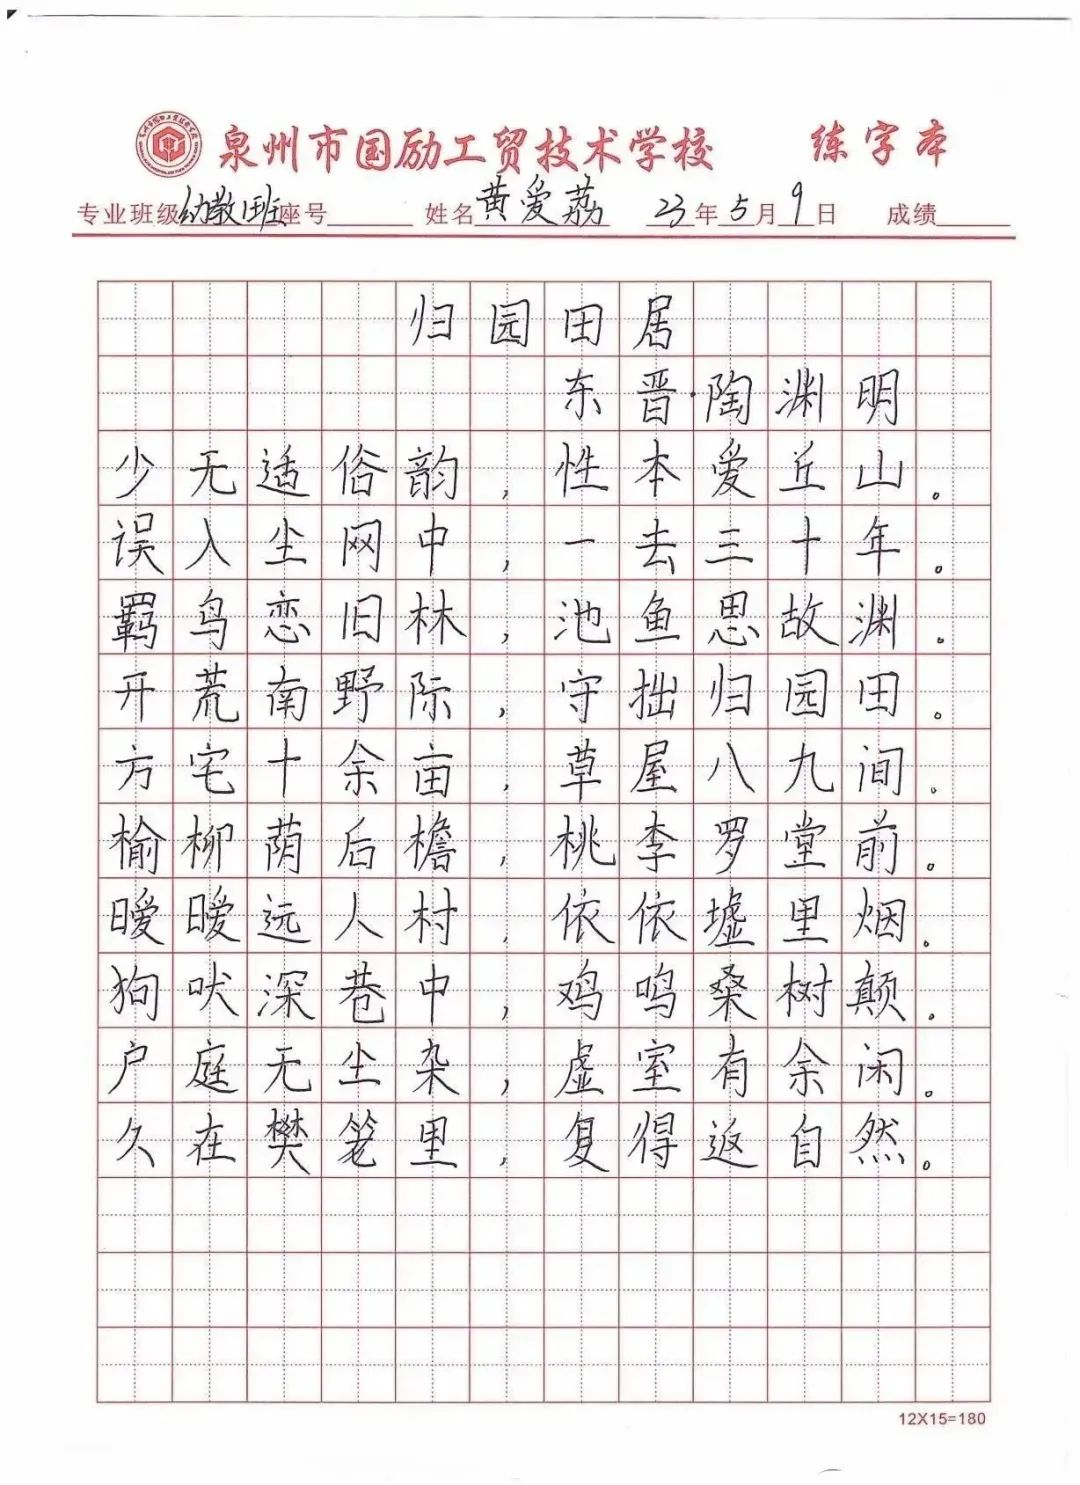 泉州市国励工贸技术学校 练字本
专业班级 幼教班 座号 姓名 黄爱荔 23年5月9日 成绩
归园田居
东晋·陶渊明
少无适俗韵，性本爱丘山。
误入尘网中，一去三十年。
羁鸟恋旧林，池鱼思故渊。
开荒南野际，守拙归园田。
方宅十余亩，草屋八九间。
榆柳荫后檐，桃李罗堂前。
暧暧远人村，依依墟里烟。
狗吠深巷中，鸡鸣桑树颠。
户庭无尘杂，虚室有余闲。
久在樊笼里，复得返自然。
12X15=180